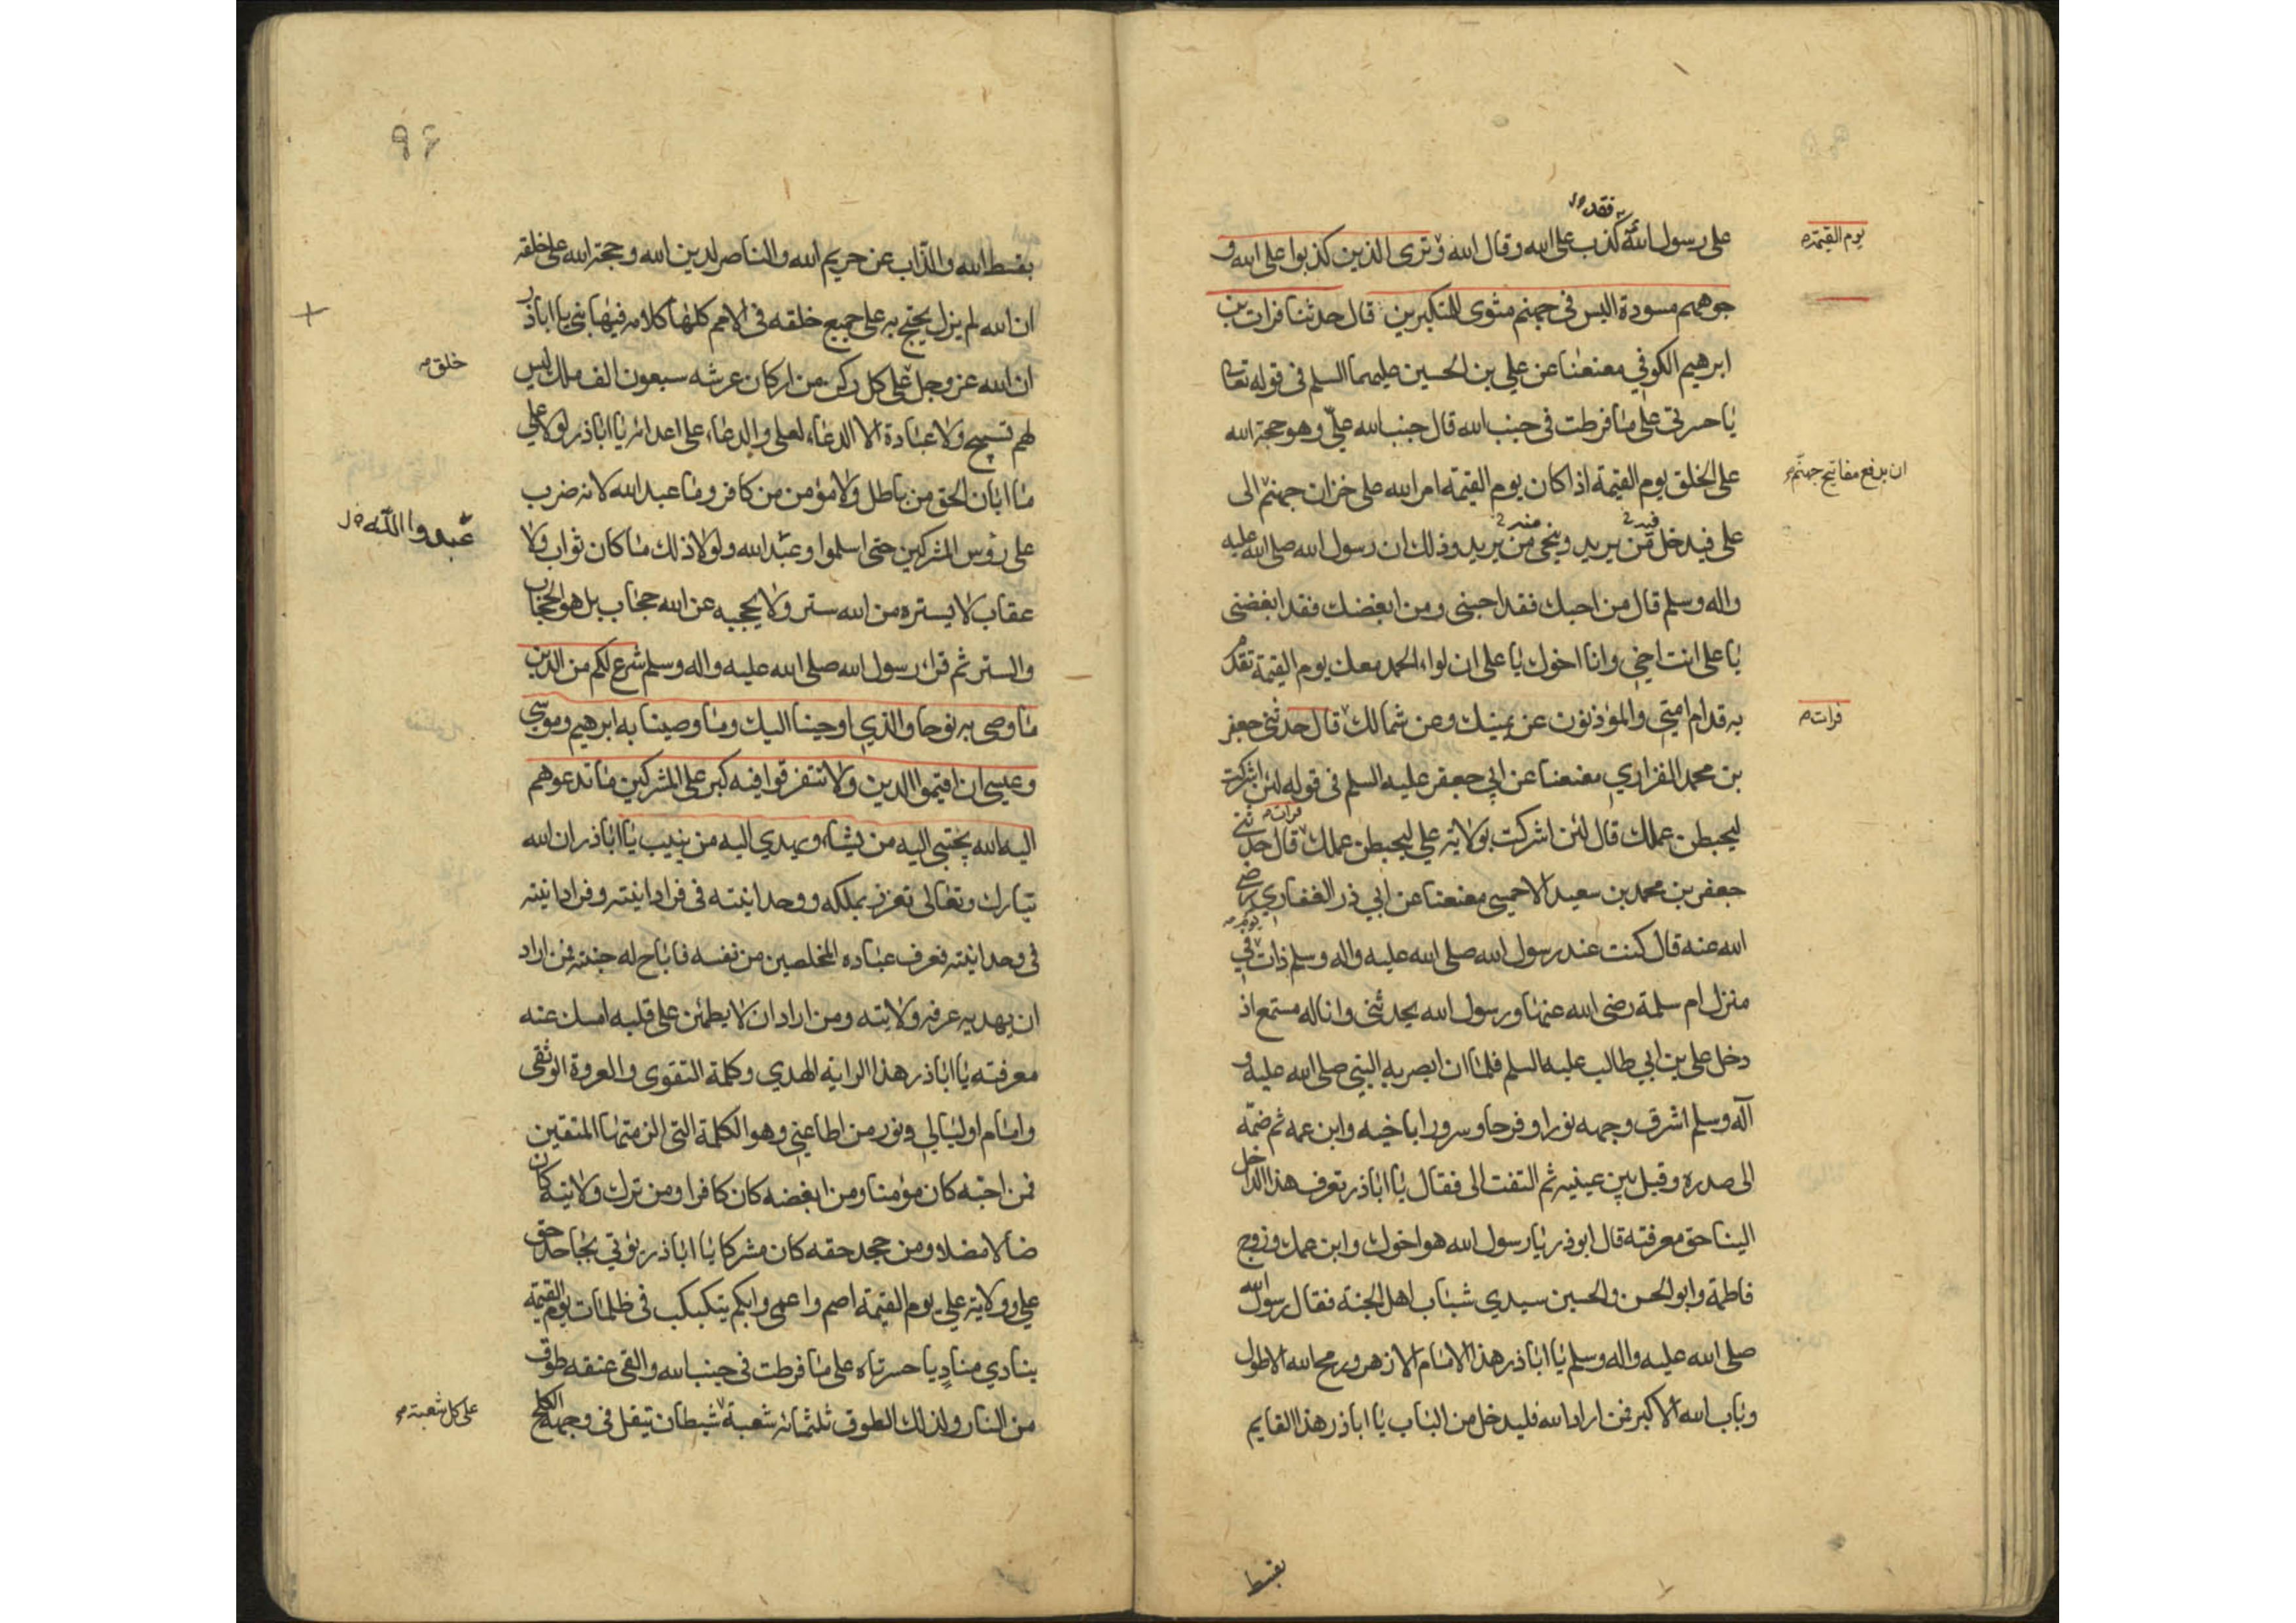 فقد ص ل
على رسول الله كذب على الله وقال الله وترى الذين كذبوا على الله و
يوم القيمة ص
جوههم مسودة اليس في جهنم مثوى للمتكبرين قال حدثنا فرات بن
ابرهيم الكوفي معنعنا عن علي بن الحسين عليهما السلم في قوله تعا
يا حسرتى على ما فرطت في جنب الله قال جنب الله علي وهو حجة الله
على الخلق يوم القيمة اذا كان يوم القيمة امر الله على خزان جهنم الى
ان يدفع مفاتيح جهنم ص
على فيدخل من يريد وينجى من يريد وذلك ان رسول الله صلى الله عليه
واله وسلم قال من احبك فقد احبنى ومن ابغضك فقد ابغضنى
يا على انت اخي وانا اخوك يا على ان لواء الحمد معك يوم القيمة تقدم
به قدام امتي والمؤذنون عن يمينك وعن شمالك قال حدثني جعفر
فرات ص
بن محمد الفزاري معنعنا عن ابي جعفر عليه السلم في قوله لئن اشركت
فرات ص
ليحبطن عملك قال لئن اشركت بولاية علي ليحبطن عملك قال حدثني
جعفر بن محمد بن سعيد الاحمسي معنعنا عن ابي ذر الغفاري رضي
يوم ص
الله عنه قال كنت عند رسول الله صلى الله عليه واله وسلم ذات في
منزل ام سلمة رضى الله عنها ورسول الله يحدثنى وانا له مستمع اذ
دخل على بن ابي طالب عليه السلم فلما ان ابصر به النبي صلى الله عليه و
آله وسلم اشرق وجهه نورا وفرحا وسرورا باخيه وابن عمه ثم ضمّه
الى صدره وقبل بين عينيه ثم التفت الى فقال يا اباذر تعرف هذا الداخل
الينا حق معرفته قال ابوذر يا رسول الله هو اخوك وابن عمك وزوج
فاطمة وابو الحسن والحسين سيدي شباب اهل الجنة فقال رسول الله
صلى الله عليه واله وسلم يا اباذر هذا الامام الازهر ورمح الله الاطول
وباب الله الاكبر فمن اراد الله فليدخل من الباب يا اباذر هذا القايم
بقسط
٩٤
بقسط الله والذاب عن حريم الله والناصر لدين الله وحجة الله على خلقه
ان الله لم يزل يحتج به على جميع خلقه في الامم كلها كلامه فيها نبي يا اباذر
ان الله عز وجل على كل ركن من اركان عرشه سبعون الف ملك ليس
خلق ص
لهم تسبيح ولا عبادة الا الدعاء لعلى والدعاء على اعدائه يا اباذر لولا على
ما ابان الحق من باطل ولا مؤمن من كافر وما عبد الله لانه ضرب
على رؤس المشركين حتى اسلموا وعبد الله ولولا ذلك ما كان ثواب ولا
عبدوا الله ص ل
عقاب لا يستره من الله ستر ولا يحجبه عن الله حجاب بل هو الحجاب
والستر ثم قرء رسول الله صلى الله عليه واله وسلم شرع لكم من الدين
ما وصى به نوحا والذي اوحينا اليك وما وصينا به ابرهيم وموسى
وعيسى ان اقيموا الدين ولا تتفرقوا فيه كبر على المشركين ما تدعوهم
اليه الله يجتبي اليه من يشاء ويهدي اليه من ينيب يا اباذر ان الله
تبارك وتعالى تعزز بملكه ووحدانيته في فردانيته وفردانيته
في وحدانيته فعرف عباده المخلصين من نفسه فاباح له جنته فمن اراد
ان يهديه عرفه ولايته ومن اراد ان لا يطمئن على قلبه امسك عنه
معرفته يا اباذر هذا الراية الهدي وكلمة التقوى والعروة الوثقى
وامام اوليايي ونور من اطاعني وهو الكلمة التي الزمتها المتقين
فمن احبه كان مؤمنا ومن ابغضه كان كافرا ومن ترك ولايته كان
ضالا مضلا ومن جحد حقه كان مشركا يا اباذر يؤتي بجاحد حق
علي وولاية علي يوم القيمة اصم واعمى وابكم يتكبكب في ظلمات يوم القيمة
ينادي مناد يا حسرتاه على ما فرطت في جنب الله والقى عنقه طوق
من النار ولذلك الطوق ثلثمائة شعبة شيطان يتفل في وجهه الكلح
على كل شعبة ص